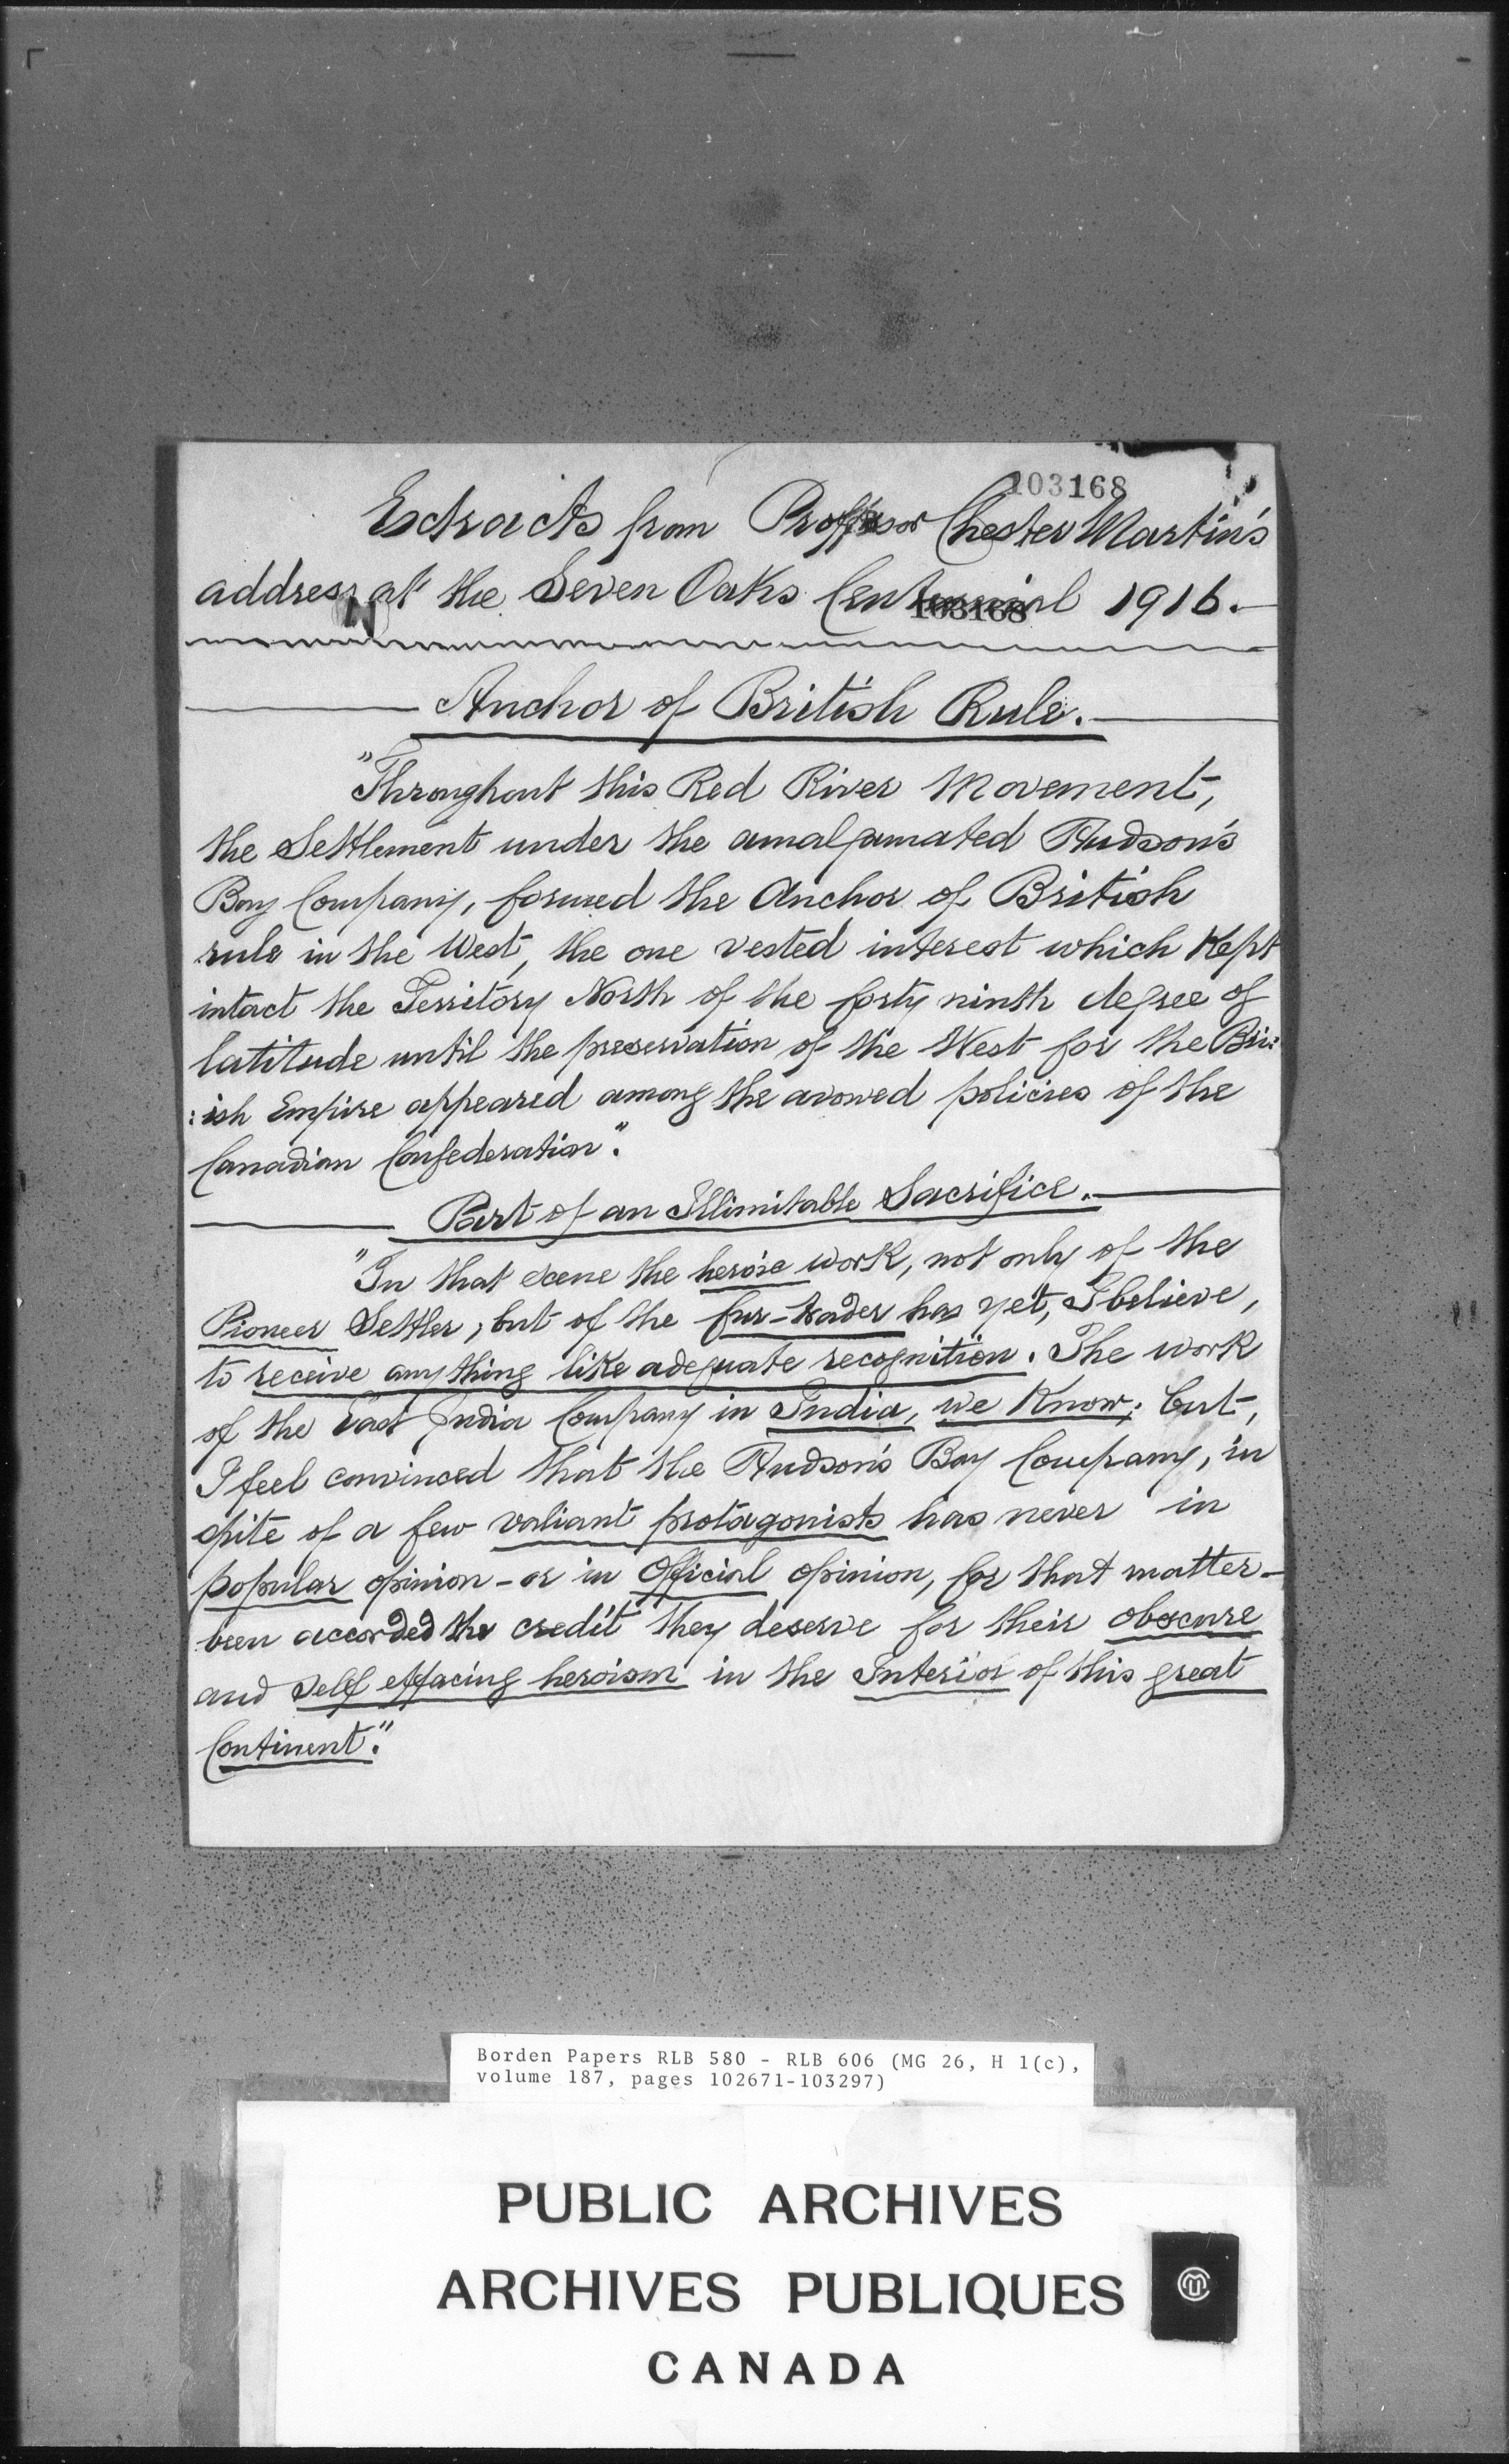 103168
Extracts from Professor Chester Martin's
address at the Seven Oaks Centennial 1916.
103168
Anchor of British Rule.
"Throughout this Red River Movement,
the Settlement under the amalgamated Hudson's
Bay Company, formed the Anchor of British
rule in the West, the one vested interest which Kept
intact the Territory North of the forty ninth degree of
latitude until the preservation of the West for the Bri:
:ish Empire appeared among the avowed policies of the
Canadian Confederation".
Part of an Illimitable Sacrifice.
"In that scene the heroic work, not only of the
Pioneer Settler, but of the fur-trader has yet, I believe,
to receive anything like adequate recognition. The work
of the East India Company in India, we Know; but,
I feel convinced that the Hudson's Bay Company, in
spite of a few valiant protagonists has never in
popular opinion - or in Official opinion, for that matter -
been accorded the credit they deserve for their obscure
and self effacing heroism in the Interior of this great
Continent."
Borden Papers RLB 580 - RLB 606 (MG 26, H 1(c),
volume 187, pages 102671-103297)
PUBLIC ARCHIVES
ARCHIVES PUBLIQUES
CANADA